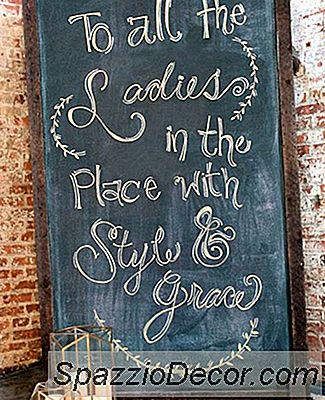 To all the
Ladies
in the
Place with
Style &
Grace
SpazzioDecor.com